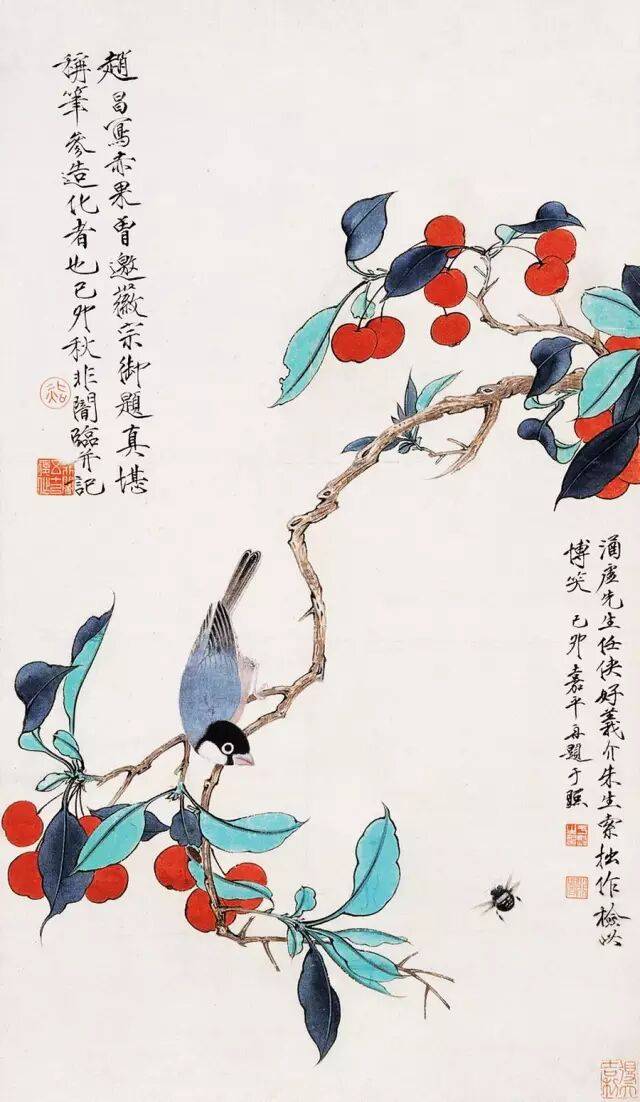 趙昌寫赤果曾邀徽宗御題真堪
稱筆參造化者也己卯秋非闇臨并記
涌虛先生任俠好義介朱生索拙作檢以
博笑 己卯嘉平再題于照